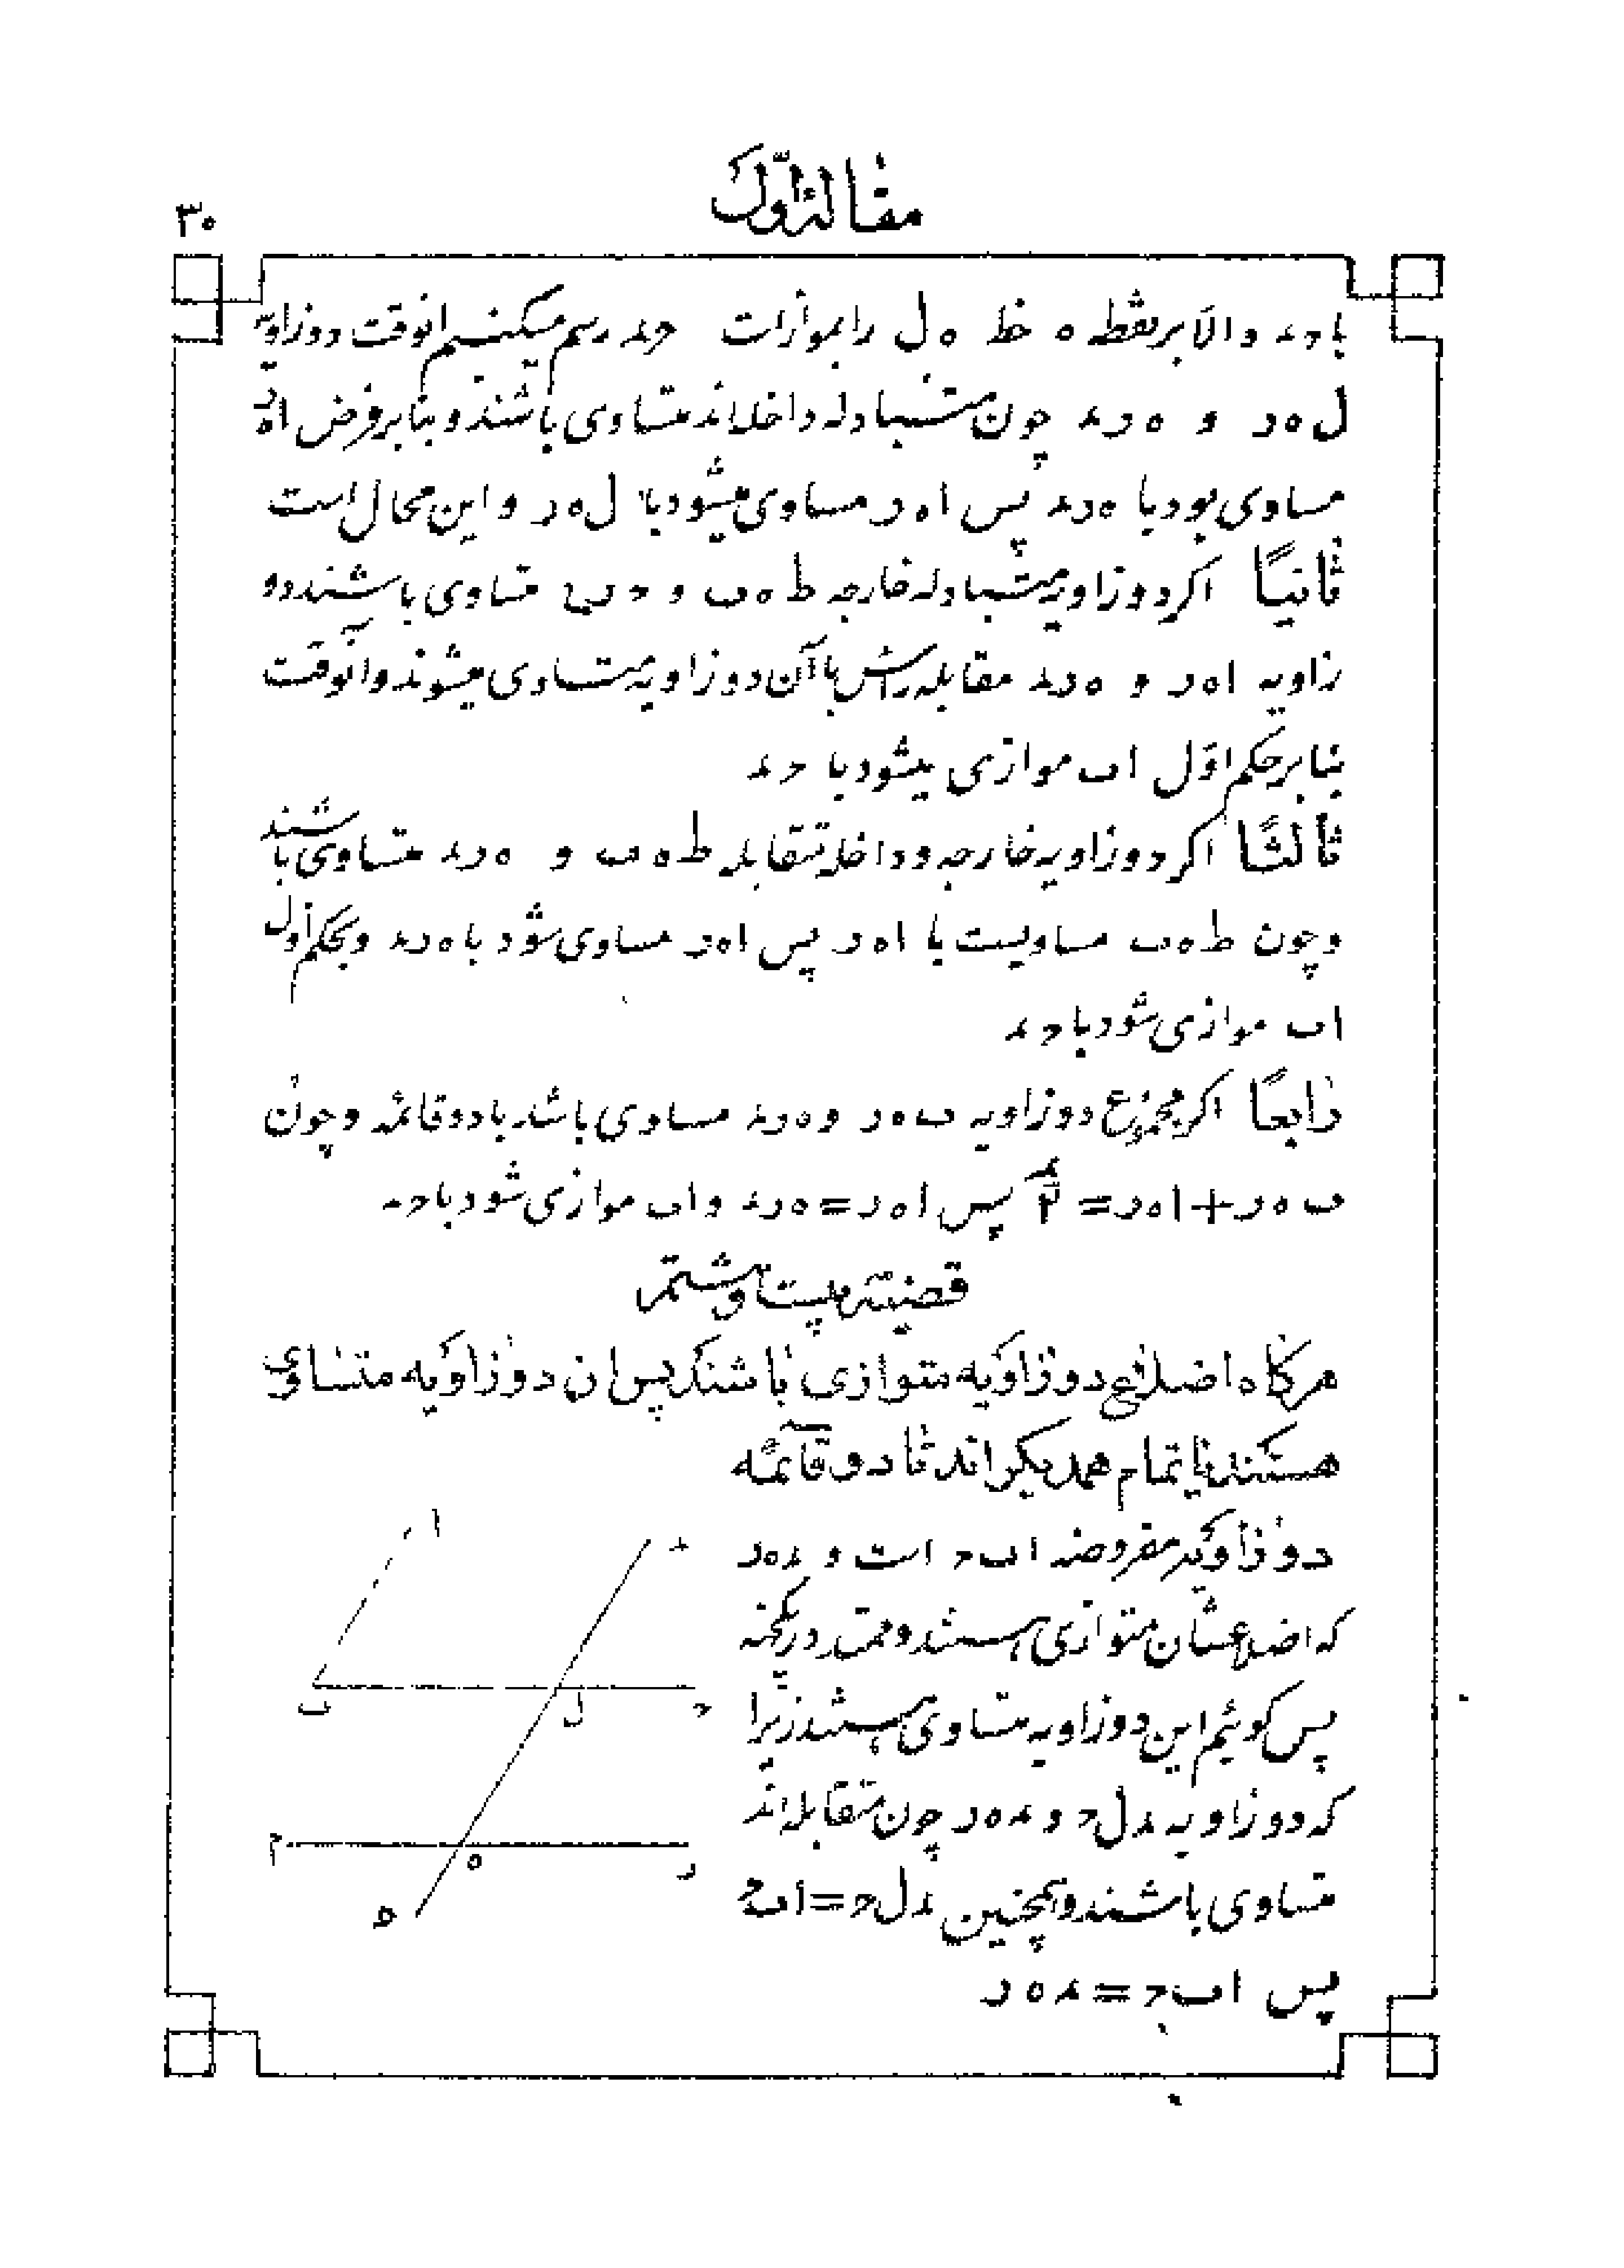 مقالهٔ اوّل
۳۰
با حد والّا بر نقطه ه خط ه ل را بموازات حد رسم میکنیم انوقت دو زاویه
ل ه ر و ه ر د چون متبادله داخله‌اند متساوی باشند و بنا بر فرض ا ه ر
مساوی بود با ه ر د پس ا ه ر مساوی میشود با ل ه ر و این محال است
ثانیاً اکر دو زاویه متبادله خارجه ط ه ب و ح ر متساوی باشند دو
زاویه ا ه ر و ه ر د مقابله راسش با آن دو زاویه متساوی میشوند وانوقت
بنا بر حکم اوّل اب موازی میشود با ح د
ثالثاً اکر دو زاویه خارجه و داخله متقابله ط ه ب و ه ر د متساوی باشند
و چون ط ه ب مساویست با ا ه ر پس ا ه ر مساوی شود با ه ر د و بحکم اول
اب موازی شود با ح د
رابعاً اکر مجموع دو زاویه ب ه ر و ه ر د مساوی باشد با دو قائمه و چون
ب ه ر + ا ه ر = ۲ پس ا ه ر = ه ر د و اب موازی شود با ح د
قضیّه بیست و هشتم
هرکاه اضلاع دو زاویه متوازی باشند پس ان دو زاویه متساوی
هستند یا تمام همدیکراند تا دو قائمه
دو زاویه مفروضه اب ح است و د ه ر
که اضلاعشان متوازی هستند و ممتد در یکجهة
پس کوئیم این دو زاویه متساوی هستند زیرا
که دو زاویه د ل ح و د ه ر چون متقابله‌اند
متساوی باشند و همچنین د ل ح = اب ح
پس اب ح = د ه ر
ا
د
ب
ل
ح
م
ه
ر
ه